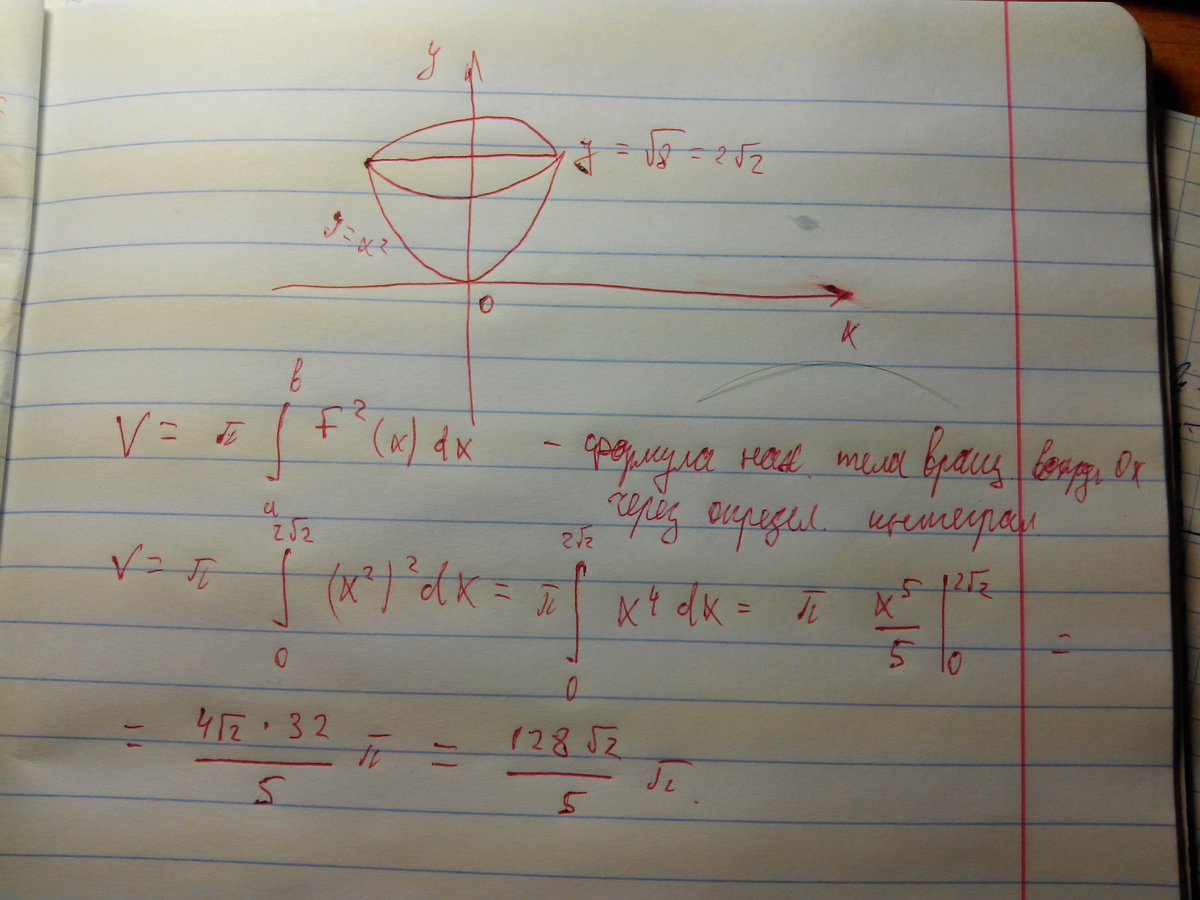 y
y = √8 = 2√2
y = x²
0
x
V = π ∫ₐᵇ F²(x) dx – формула нах. тела вращ. вокруг Ox
через определ. интеграл
V = π ∫₀^{2√2} (x²)² dx = π ∫₀^{2√2} x⁴ dx = π x⁵/5 |₀^{2√2} =
= (4√2 · 32)/5 π = (128√2)/5 π.